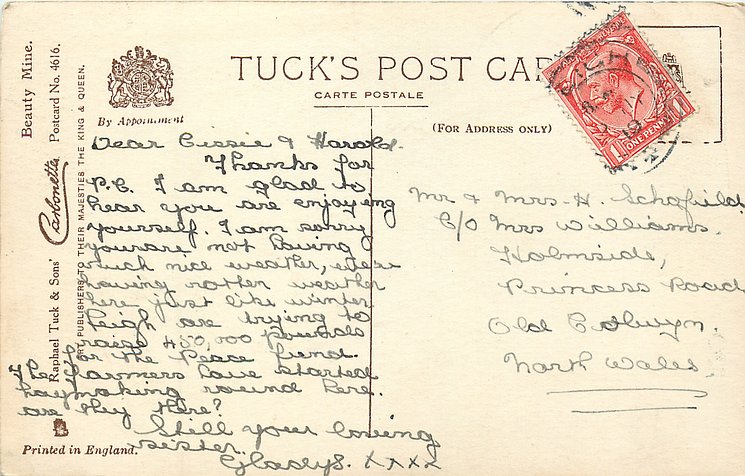 TUCK'S POST CAR
CARTE POSTALE
By Appointment
(FOR ADDRESS ONLY)
Beauty Mine.
Postcard No. 4616.
Carbonette
Raphael Tuck & Sons'
ART PUBLISHERS TO THEIR MAJESTIES THE KING & QUEEN.
ONE PENNY
1 1
Dear Cissie & Harold.
Thanks for
P.C. I am glad to
hear you are enjoying
yourself. I am sorry
you are not having
much nice weather,
having rotten weather
here just like winter
Leigh are trying to
raise £50,000 pounds
for the Peace fund.
The farmers have started
haymaking round here.
are they there?
Still your loving
sister.
Gladys. xxxx
Mr & Mrs. H. Schofield.
C/O Mrs Williams.
Holmside,
Princess Road
Old Colwyn.
North Wales.
Printed in England.